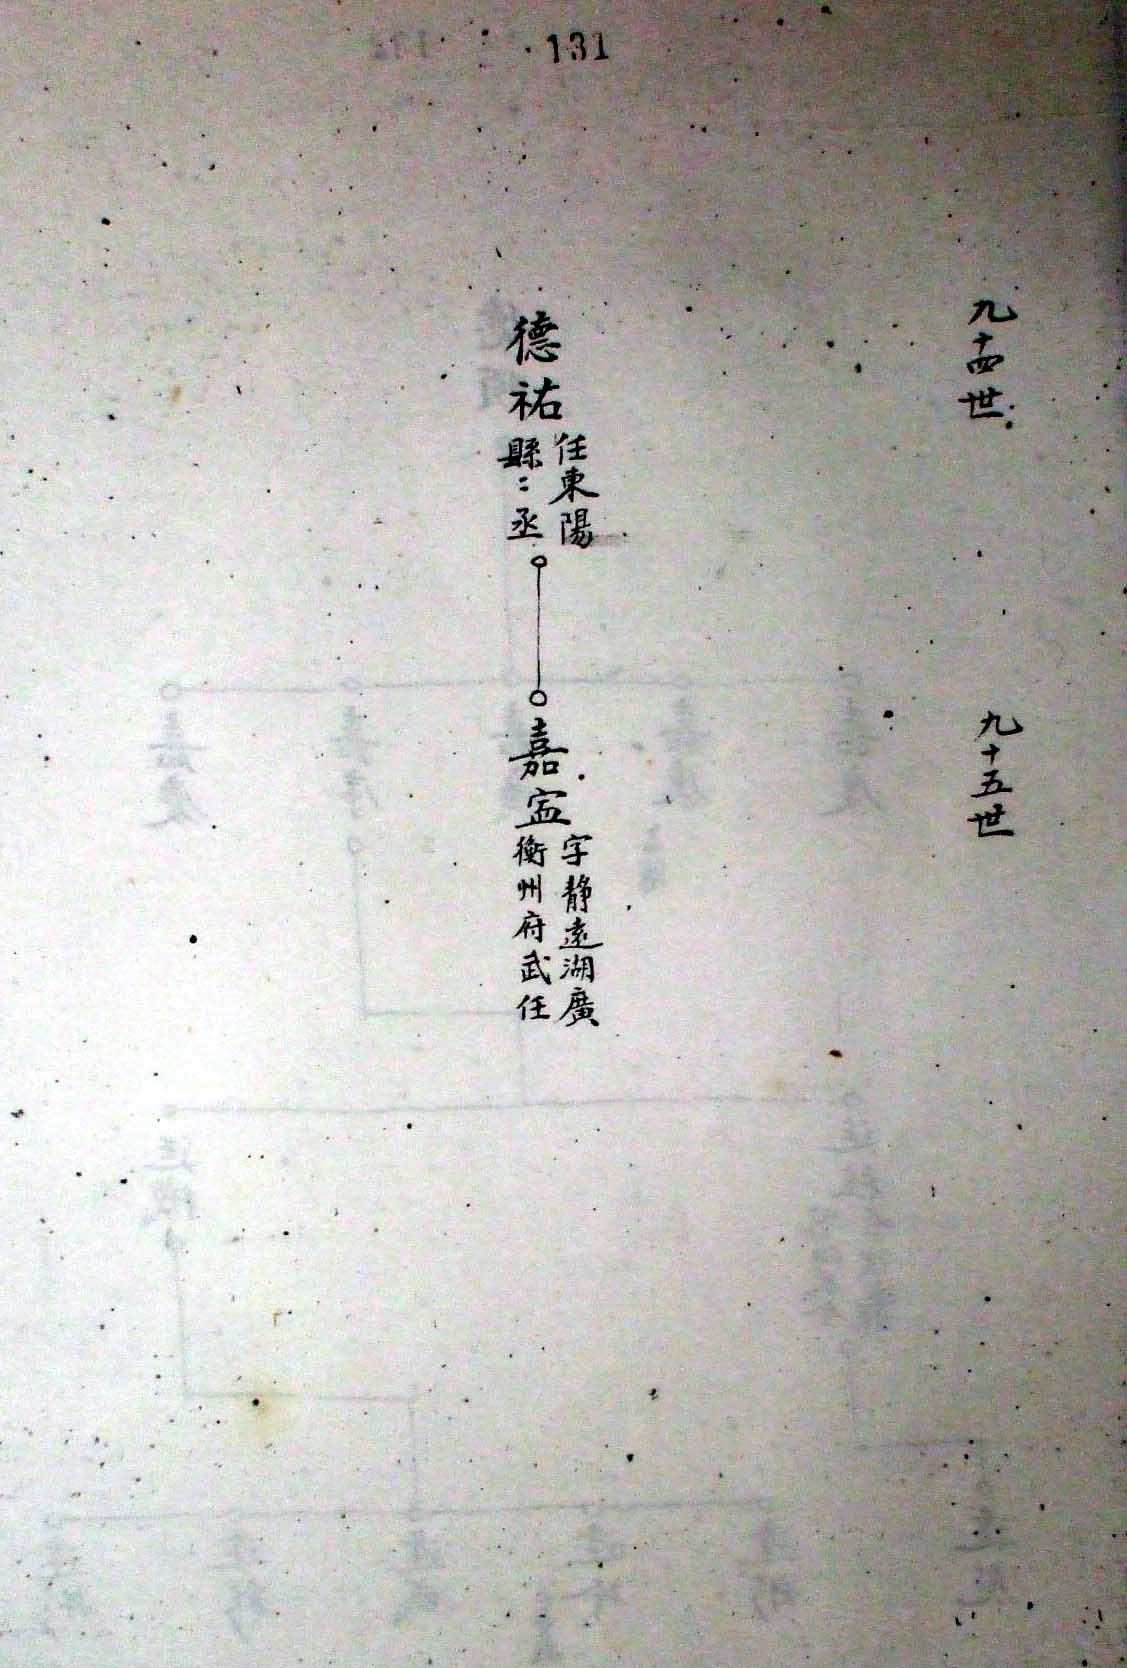 131
九十四世
德祐
任東陽
縣〻丞
九十五世
嘉寍
字静遠湖廣
衡州府武任